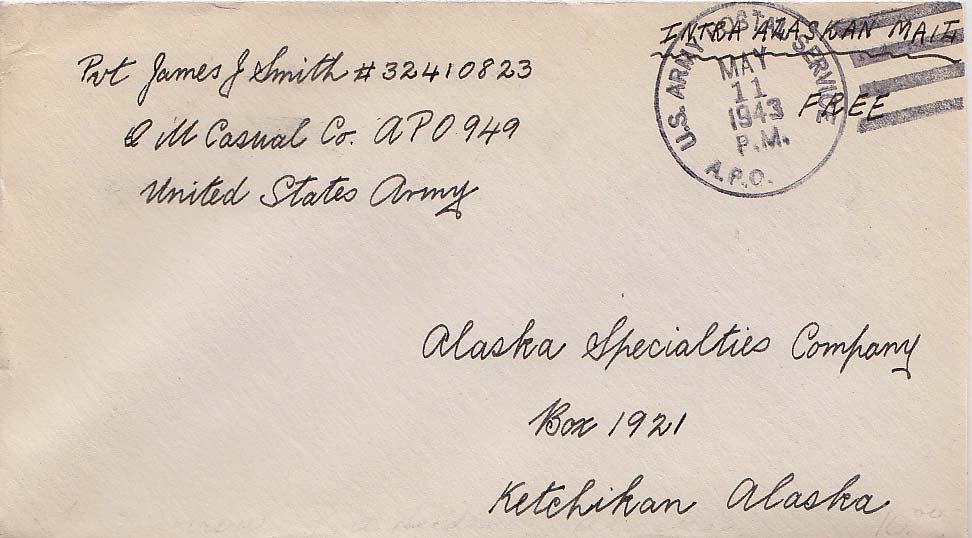 Pvt James J Smith #32410823
Q M Casual Co. APO 949
United States Army
INTRA ALASKAN MAIL
FREE
U.S. ARMY POSTAL SERVICE
MAY
11
1943
P.M.
A.P.O.
Alaska Specialties Company
Box 1921
Ketchikan Alaska